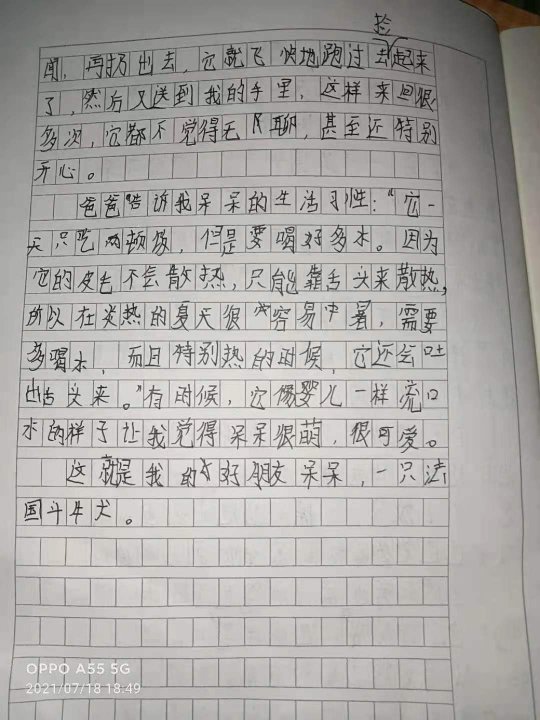 捡
闻，再扔出去，它就飞快地跑过去起来
了，然后又送到我的手里，这样来回很
多次，它都不觉得无聊，甚至还特别
开心。
爸爸告诉我呆呆的生活习性：“它一
天只吃两顿饭，但是要喝好多水。因为
它的皮毛不会散热，只能靠舌头来散热，
所以在炎热的夏天很容易中暑，需要
多喝水，而且特别热的时候，它还会吐
出舌头来。”有时候，它像婴儿一样流口
水的样子让我觉得呆呆很萌，很可爱。
这就是我的好朋友呆呆，一只法
国斗牛犬。
OPPO A55 5G
2021/07/18 18:49